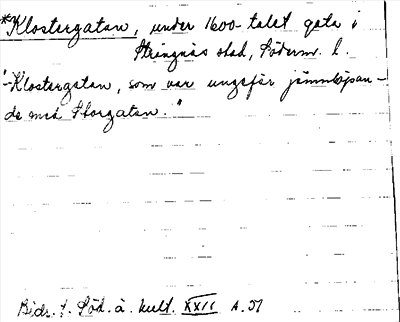 *Klostergatan, under 1600-talet gata i
Strängnäs stad, Söderm. l.
"-Klostergatan, som var ungefär jämnlöpan-
de med Storgatan."
Bidr. t. Söd. ä. kult. XXII s. 51